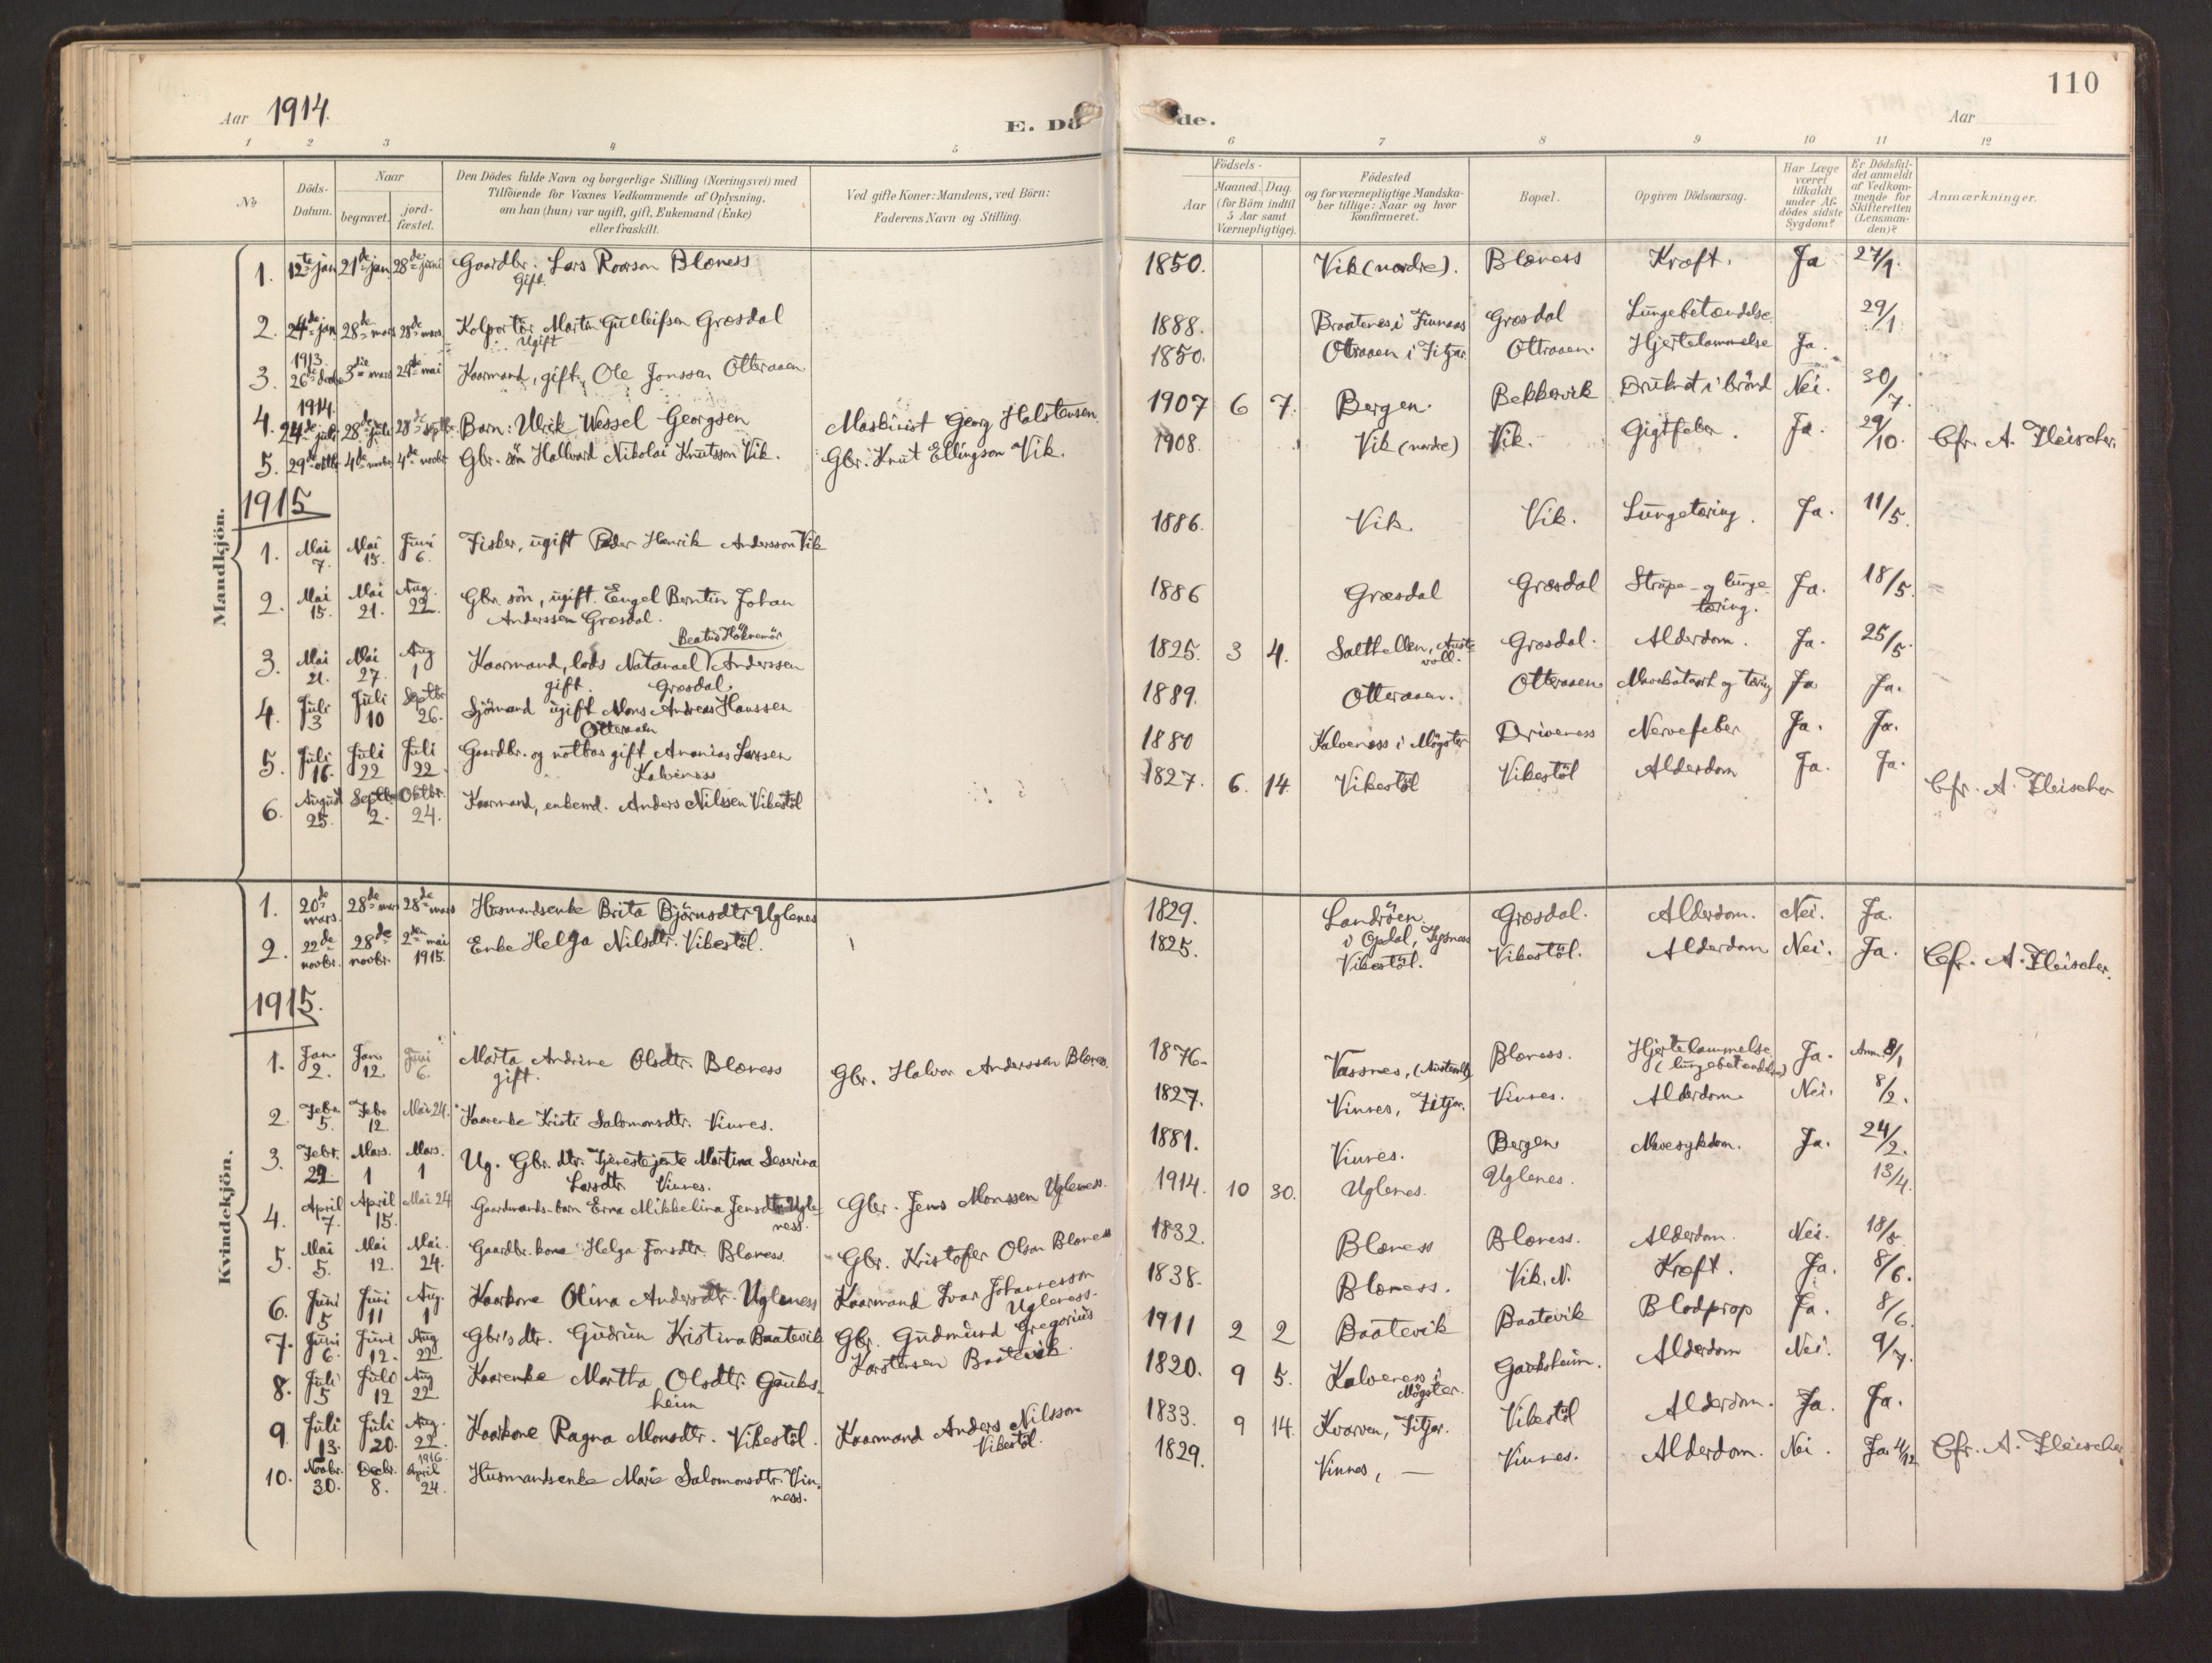 110
Aar 1914.
E. Dö de.
Aar
1 2 3 4 5 6 7 8 9 10 11 12
No
Döds-Datum.
Naar
begravet.
jord-fæstet.
Den Dödes fulde Navn og borgerlige Stilling (Næringsvei) med
Tilföiende for Voxnes Vedkommende af Oplysning,
om han (hun) var ugift, gift, Enkemand (Enke)
eller fraskilt.
Ved gifte Koner: Mandens, ved Börn:
Faderens Navn og Stilling.
Födsels-
Aar
Maaned. Dag.
(for Börn indtil
5 Aar samt
Værnepligtige).
Födested
og for værnepligtige Mandska-
ber tillige: Naar og hvor
konfirmeret.
Bopæl.
Opgiven Dödsaarsag.
Har Læge
været
tilkaldt
under Af-
dödes sidste
Sygdom?
Er Dödsfal-
det anmeldt
af Vedkom-
mende for
Skifteretten
(Lensman-
den)?
Anmærkninger.
Mandkjön.
1. 12te jan 21de jan 28de juni Gaardbr. Lars Roarson Blæness 1850. Vik (nordre). Blæness Kræft. Ja 27/1.
Gift.
2. 24de jan 28de mars 28de mars Kolportör Marten Gulleifsen Græsdal 1888. Braatenes i Finnaas Græsdal Lungebetændelse 29/1
Ugift
1913.
3. 26de 3die mars 24de mai Kaarmand, gift, Ole Jonssen Otteraaen 1850. Otraaen i Fitjar. Ottraaen. Hjertelammelse Ja.
1914.
4. 24de juli 28de juli 28de septbr. Barn: Ulrik Wessel Georgsen Maskinist Georg Halstensen 1907 6 7. Bergen. Bekkervik Druknet i brönd Nei. 30/7.
5. 29de oktbr. 4de novbr. 4de novbr. Gbr. sön Hallvard Nikolai Knutsson Vik. Gbr. Knut Ellingson Vik. 1908. Vik (nordre) Vik. Gigtfeber. Ja. 29/10. Cfr. A. Fleischer.
1915
1. Mai 7. Mai 15. Juni 6. Fisker, ugift Peder Henrik Andersson Vik 1886. Vik. Vik. Lungetæring. Ja. 11/5.
2. Mai 15. Mai 21. Aug. 22. Gbr. sön, ugift. Engel Berntin Johan 1886 Græsdal Græsdal Strupe- og lunge- Ja. 18/5.
Anderssen Græsdal. tæring.
3. Mai 21. Mai 27. Aug 1 Kaarmand, lods Natanael Anderssen 1825. 3 4. Salthellen, Auste- Græsdal. Alderdom. Ja. 25/5.
gift. Græsdal. voll.
4. Juli 3 Juli 10 Septbr 26. Sjömand ugift Mons Andreas Hanssen 1889. Otteraaen. Otteraaen Mavekatarh og tæring Ja Ja.
Otteraaen
5. Juli 16. Juli 22 Juli 22 Gaardbr. og notbas gift Ananias Larssen 1880 Kalveness i Mögster Driveness Nervefeber Ja. Ja.
Kalveness
6. August 25. Septbr 2. Oktbr. 24. Kaarmand, enkemd. Anders Nilssen Vikestöl 1827. 6. 14. Vikestöl Vikestöl Alderdom Ja. Ja. Cfr. A. Fleischer
Kvindekjön.
1. 20de mars. 28de mars 28de mars Husmandsenke Brita Björnsdtr. Uglenes 1829. Landröen Græsdal. Alderdom. Nei. Ja.
i Opdal, Tysnes
2. 22de novbr. 28de novbr. 2den mai 1915. Enke Helga Nilsdtr. Vikestöl. 1825. Vikestöl. Vikestöl. Alderdom Nei. Ja. Cfr. A. Fleischer.
1915.
1. Jan. 2. Jan 12. Juni 6. Marta Andrine Olsdtr. Blæness Gbr. Halvor Anderssen Blænes. 1876. Vassnes, (Austevoll) Blæness. Hjertelammelse Ja. Anm. 8/1
gift. (lungebetændelse)
2. Febr. 5. Febr 12. Mai 24. Kaarenke Kristi Salomonsdtr. Vinnes. 1827. Vinnes, Fitjar. Vinnes. Alderdom. Nei. 8/2.
3. Febr. 22. Mars. 1 Mars. 1 Ug. Gbr. dtr. Tjenestejente Martina Severina 1881. Vinnes. Bergen Mavesykdom. Ja. 24/2.
Larsdtr. Vinnes.
4. April 7. April 15. Mai 24 Gaardmands-barn Erna Mikkelina Jensdtr. Ugle- Gbr. Jens Monssen Uglenes. 1914. 10 30. Uglenes. Uglenes. 13/4.
ness.
5. Mai 5. Mai 12. Mai. 24. Gaardbr. kone Helga Jonsdtr. Blæness. Gbr. Kristofer Olson Blæness 1832. Blæness Blæness. Alderdom. Nei. 18/5.
6. Juni 5 Juni 11 Aug. 1 Kaarkone Olina Andersdtr. Ugleness Kaarmand Ivar Johannesson 1838. Blæness. Vik. N. Kræft. Ja. 8/6.
Ugleness.
7. Juni 6. Juni 12. Aug 22. Gbr's dtr. Gudrun Kristina Baatevik Gbr. Gudmund Gregorius 1911 2 2 Baatevik Baatevik Blodprop Ja. 8/6.
Karstensen Baatevik.
8. Juli 5 Juli 12 Aug 22 Kaarenke Martha Olsdtr. Gauks- 1820. 9 5. Kalveness i Gauksheim. Alderdom Nei. 9/7.
heim Mögster.
9. Juli 13. Juli 20. Aug. 22. Kaarkone Ragna Monsdtr. Vikestöl. Kaarmand Anders Nilsson 1833. 9 14. Kvarven, Fitjar. Vikestöl Alderdom. Ja. Ja.
Vikestöl.
10. Novbr. 30. Decbr. 8. 1916. April 24. Husmandsenke Marie Salomonsdtr. Vin- 1829. Vinnes, — Vinnes. Alderdom. Nei. Ja. 4/12 Cfr. A. Fleischer
ness.